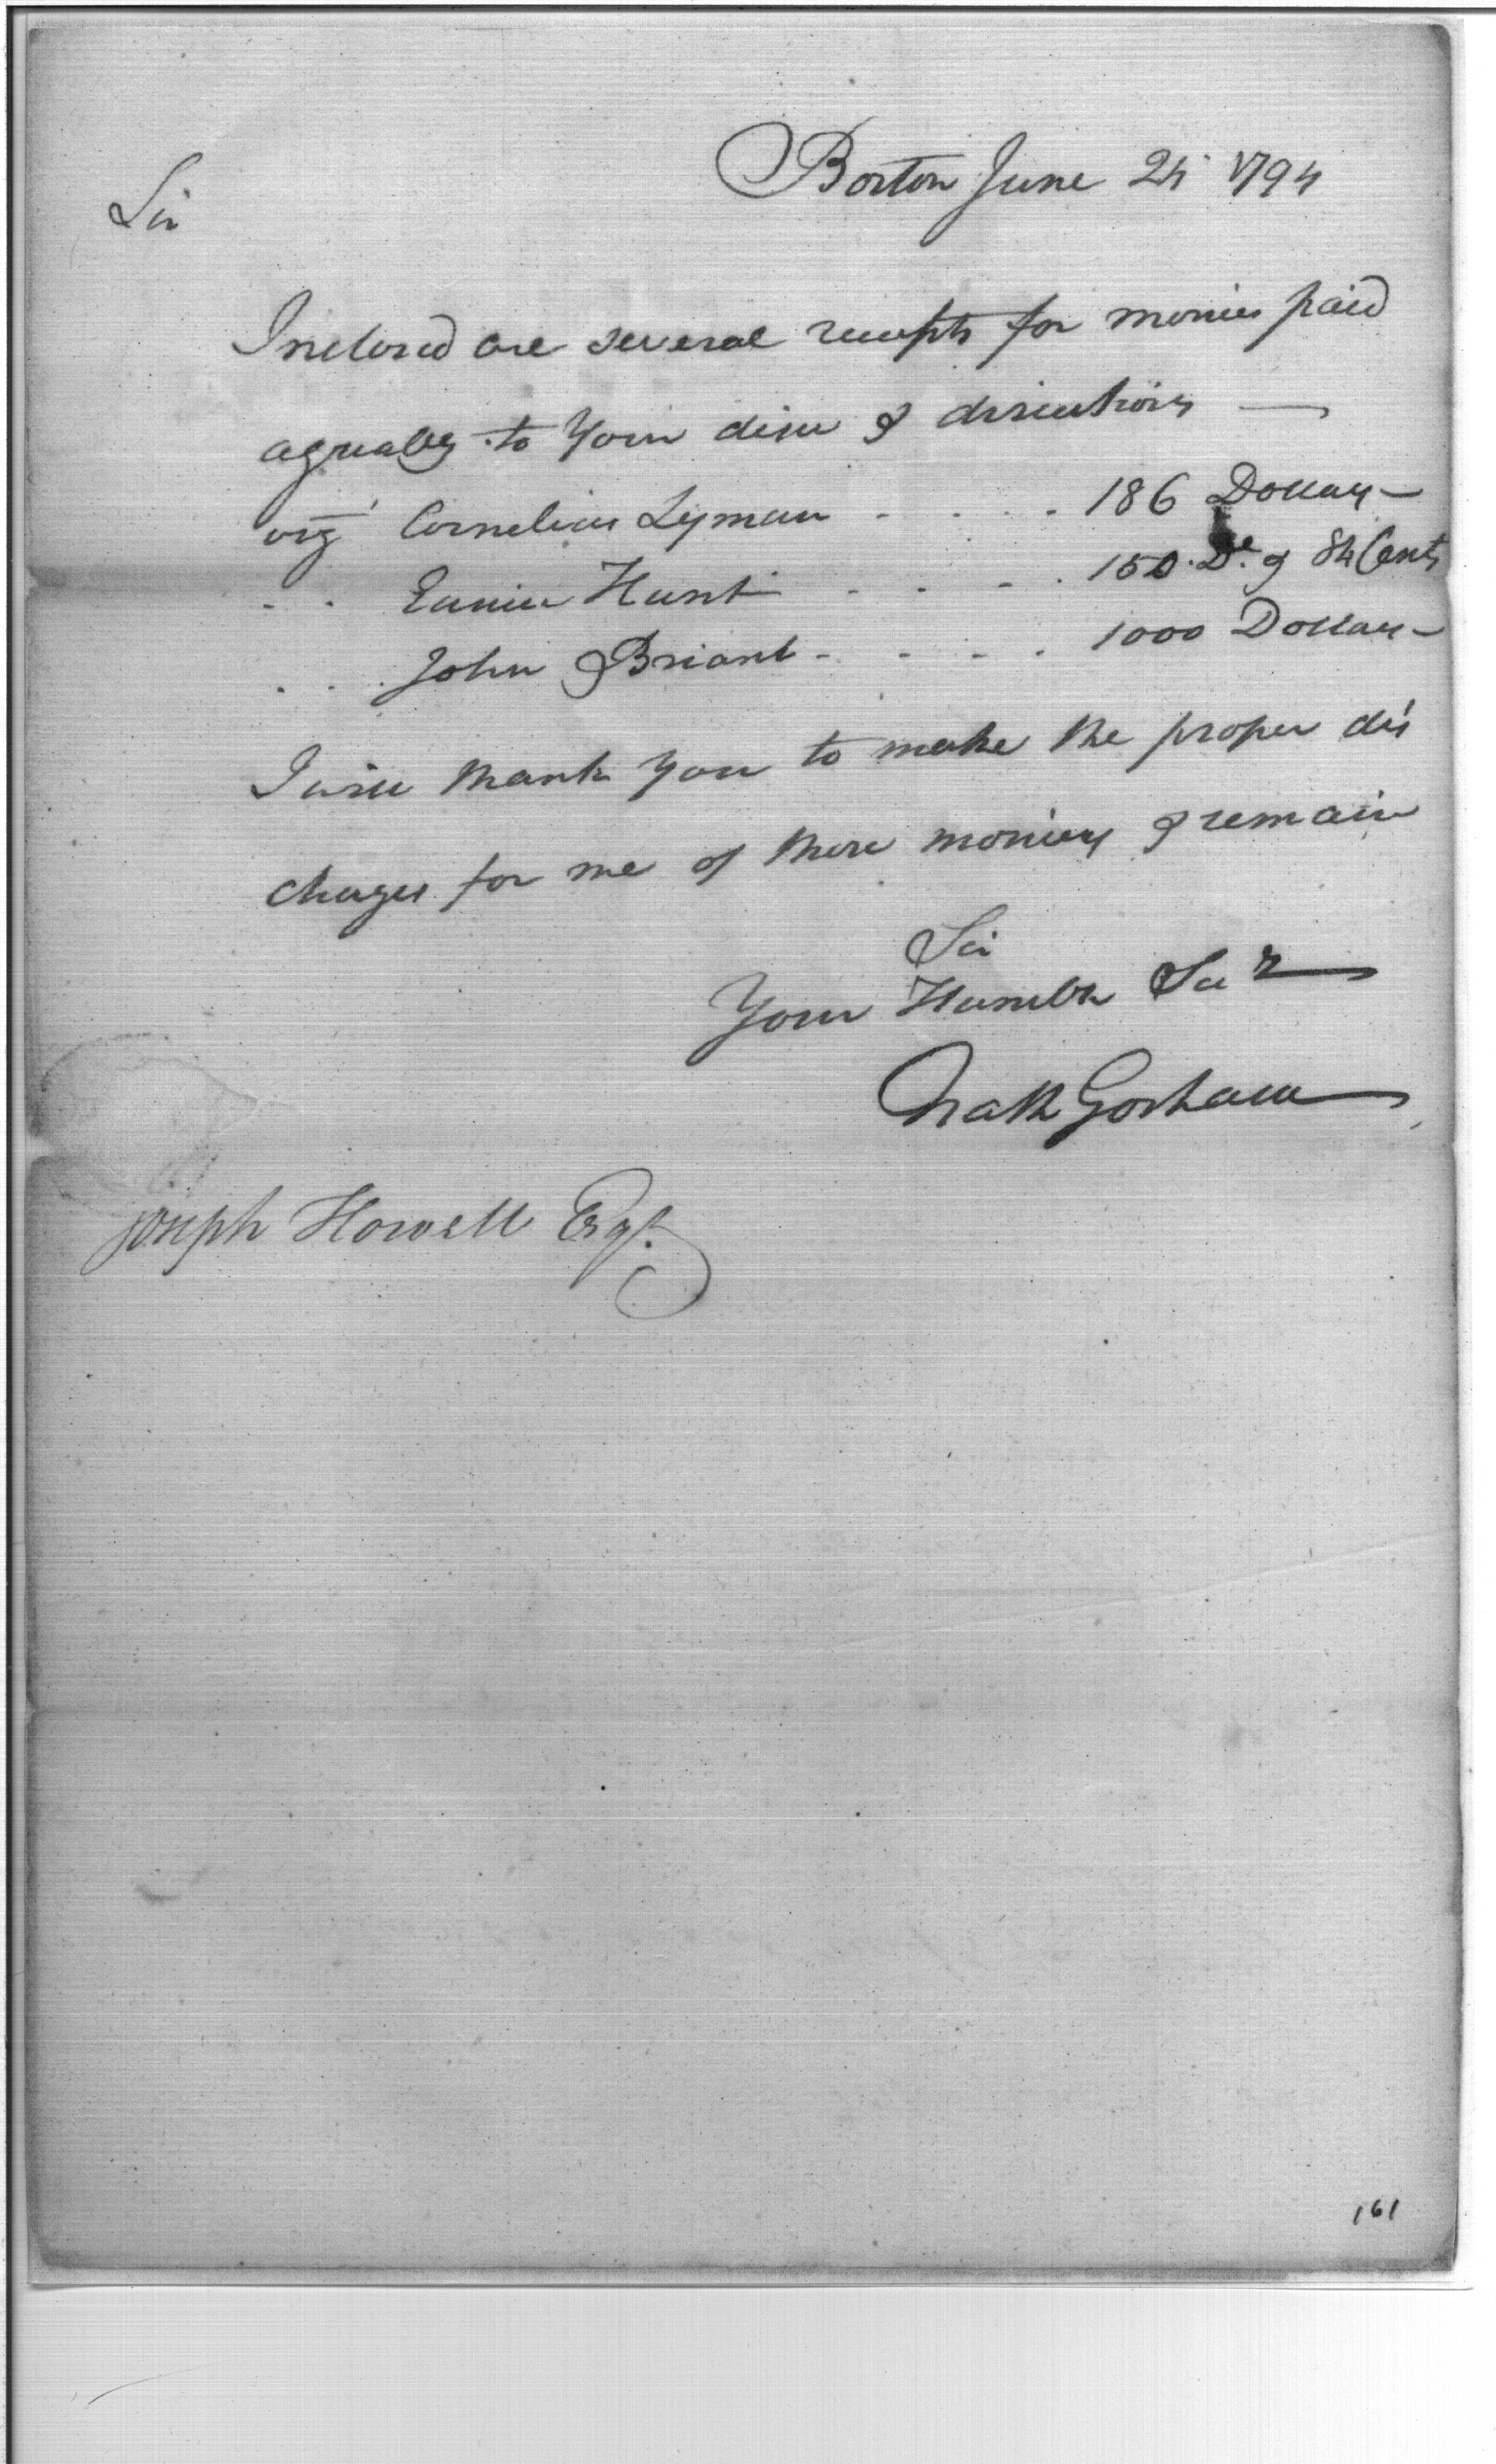 Boston June 24 1794
Sir
Inclosed are several receipts for monies paid
agreably to Your desire & diricutions —
viz Cornelius Lyman - - - - 186 Dollars —
- - Eunice Hunt - - - - 150. Do. & 84 Cents
- - John Briant - - - - 1000 Dollars —
I will thank you to make the proper dis
charges for me of these monies & remain
Sir
Your Humble Ser
Nath Gorham
Joseph Howell Esqr.
161